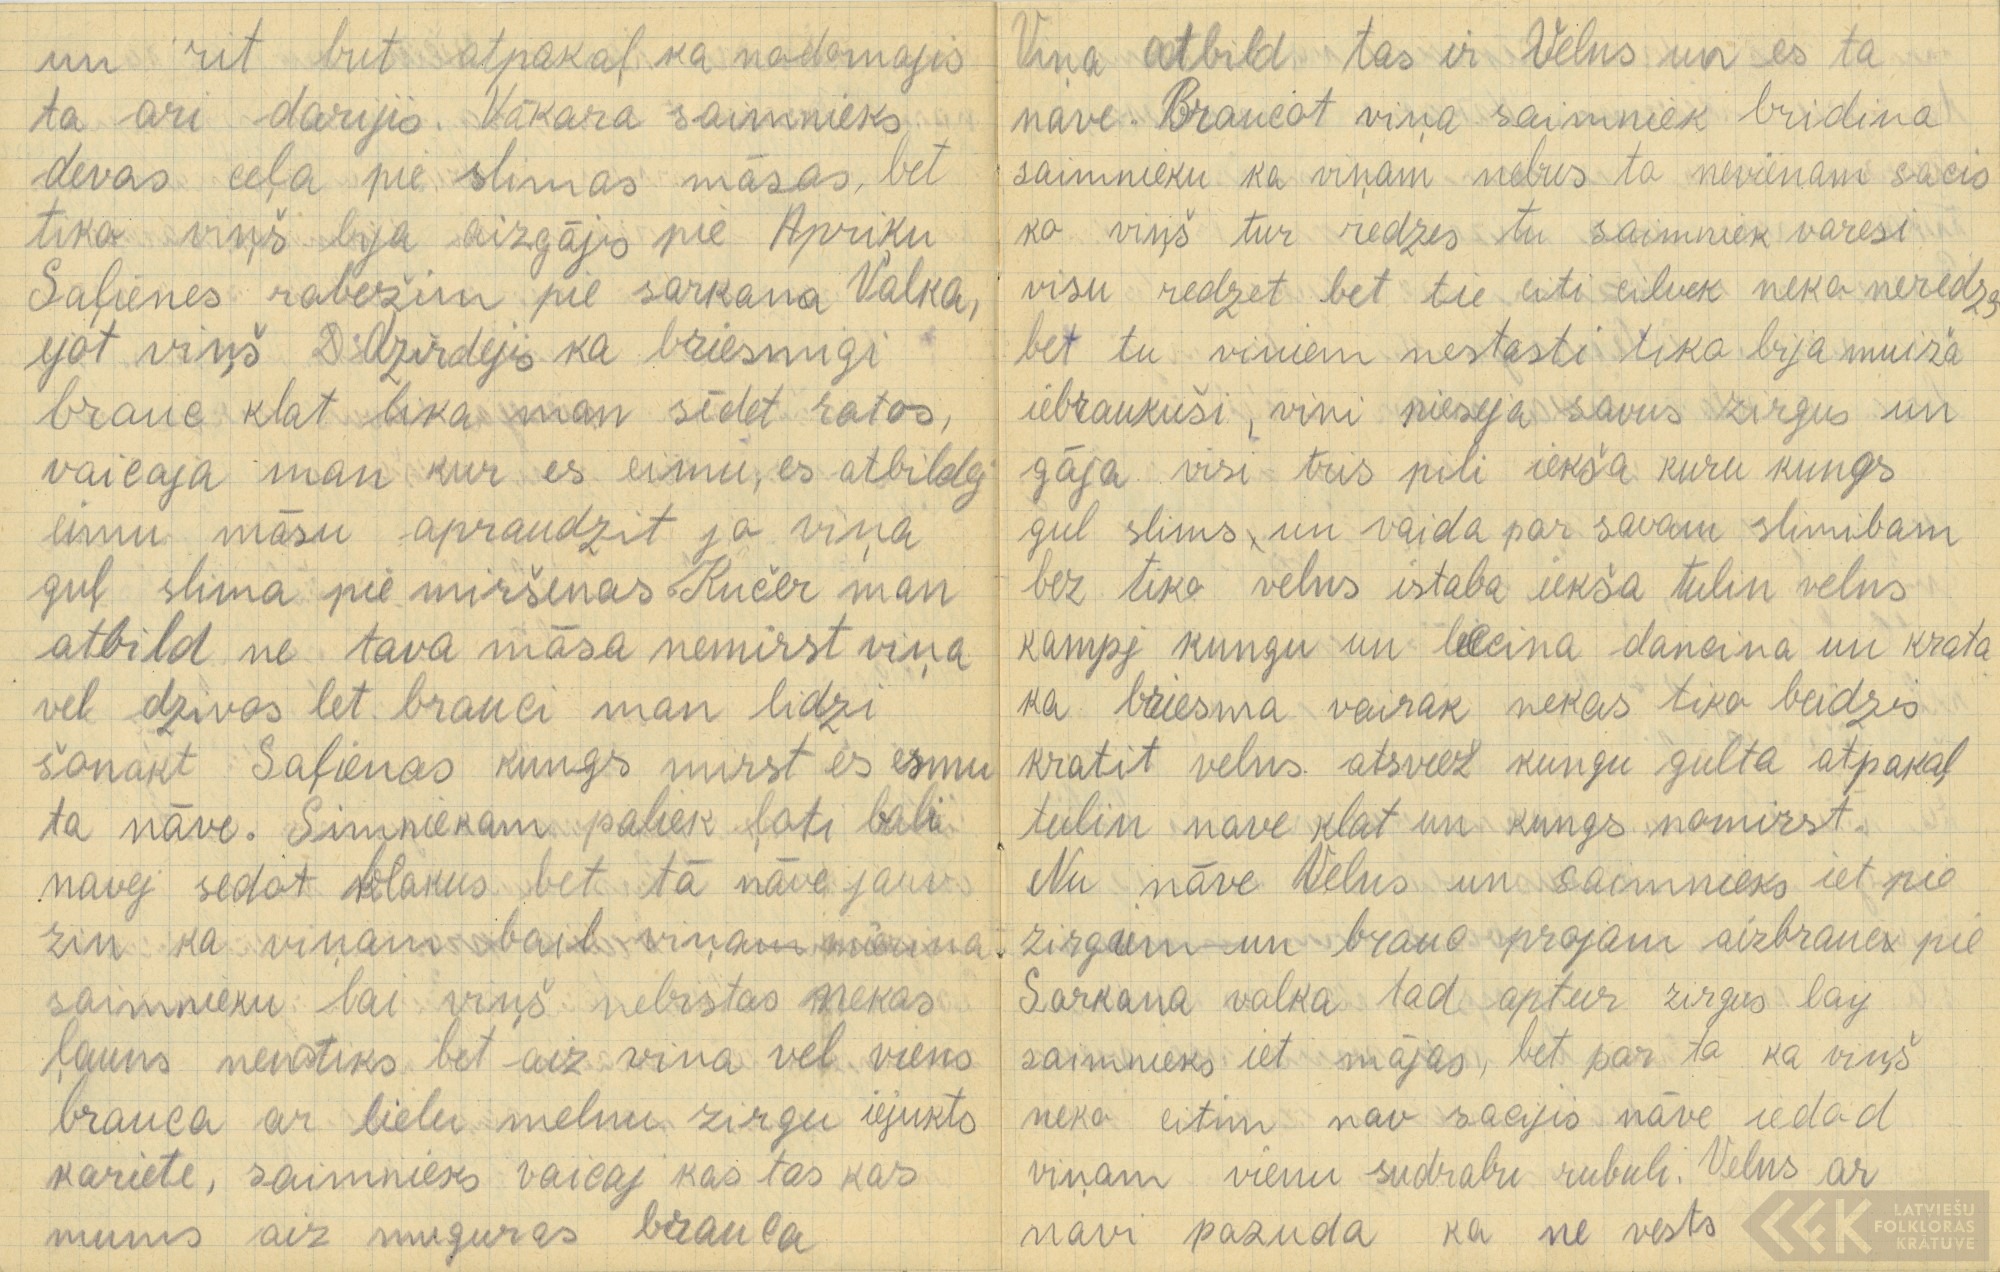 un rit but atpakaļ ka nodomajis
ta ari darijis. Vakara saimnieks
devas ceļa pie slimas māsas, bet
tiko viņš bija aizgājis pie Apriķu
Saļienes robežim pie sarkana Valka,
ejot viņš Dzirdejis ka briesmigi
brauc klat lika man sēdet ratos,
vaicaja man kur es eimu, es atbildej
eimu māsu apraudzit jo viņa
guļ slima pie miršenas Kučer man
atbild ne tava māsa nemirst viņa
vel dzivos bet brauci man lidzi
šonakt Saļienas kungs mirst es esmu
ta nāve. Simniekam paliek ļoti bali
navej sedot blakus bet tā nāve jau
zin ka viņam bail viņam mierina
saimnieku lai viņš nebistas nekas
ļauns nenotiks bet aiz viņa vel viens
brauca ar lielu melnu zirgu iejukts
kariete, saimnieks vaicaj kas tas kas
mums aiz muguras brauca
Viņa atbild tas ir Velns un es ta
nāve. Braucot viņa saimniek bridina
saimnieku ka viņam nebus to nevienam sacis
ko viņš tur redzes tu saimniek varesi
visu redzet bet tie citi cilvek neko neredzes
bet tu viniem nestasti tiko bija muiža
iebraukuši, vini pieseja savus zirgus un
gāja visi tris pili iekša kuru kungs
gul slims, un vaida par savam slimibam
bez tiko velns istaba iekša tulin velns
kampj kungu un lecina dancina un krata
ka briesma vairak nekas tiko beidzis
kratit velns atsviež kungu gulta atpakaļ
tulin nave klat un kungs nomirst.
Nu nāve Velns un saimnieks iet pie
zirgum un brauc projam aizbrauca pie
Sarkana valka tad aptur zirgus laij
saimnieks iet mājas, bet par ta ka viņš
neko citim nav sacijis nāve iedod
viņam vienu sudrabu rubuli. Velns ar
navi pazuda ka ne vests
LATVIEŠU
FOLKLORAS
KRĀTUVE